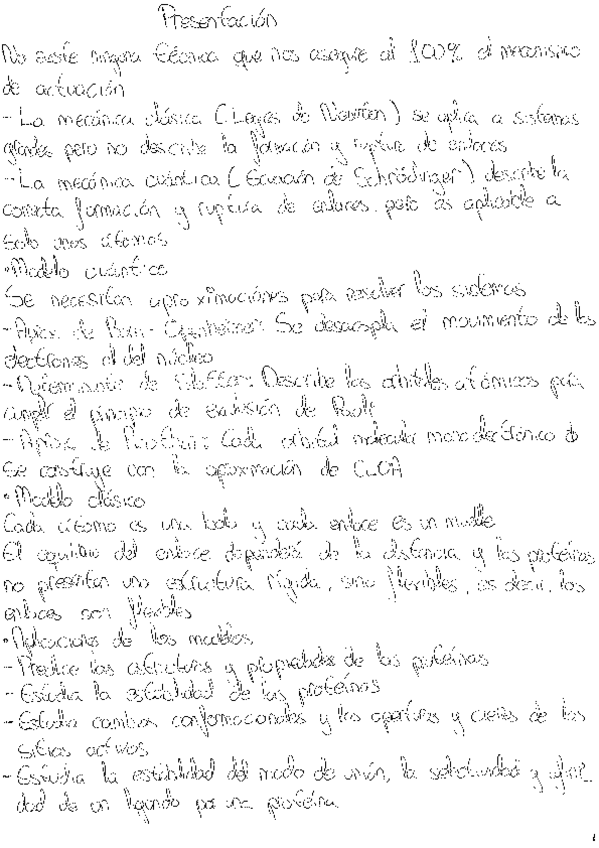 Presentación
No existe ninguna técnica que nos asegure al 100% el mecanismo
de actuación
- La mecánica clásica (Leyes de Newton) se aplica a sistemas
grandes pero no describe la formación y ruptura de enlaces
- La mecánica cuántica (Ecuación de Schrödinger) describe la
correcta formación y ruptura de enlaces, pero es aplicable a
solo unos átomos
• Modelo cuántico
Se necesitan aproximaciones para resolver los sistemas
- Aprox. de Born-Oppenheimer: Se desacopla el movimiento de los
electrones al del núcleo
- Determinante de Slatter: Describe los orbitales atómicos para
cumplir el principio de exclusión de Pauli
- Aprox. de Cada orbital molecular monoelectrónico ϕ
se construye con la aproximación de CLOA
• Modelo clásico
Cada átomo es una bola y cada enlace es un muelle
El equilibrio del enlace dependerá de la distancia y las proteínas
no presentan una estructura rígida, sino flexibles, es decir, los
enlaces son flexibles
• Aplicaciones de los modelos
- Predice las estructuras y propiedades de las proteínas
- Estudia la estabilidad de las proteínas
- Estudia cambios conformacionales y las aperturas y cierres de los
sitios activos
- Estudia la estabilidad del modo de unión, la selectividad y afini
dad de un ligando por una proteína